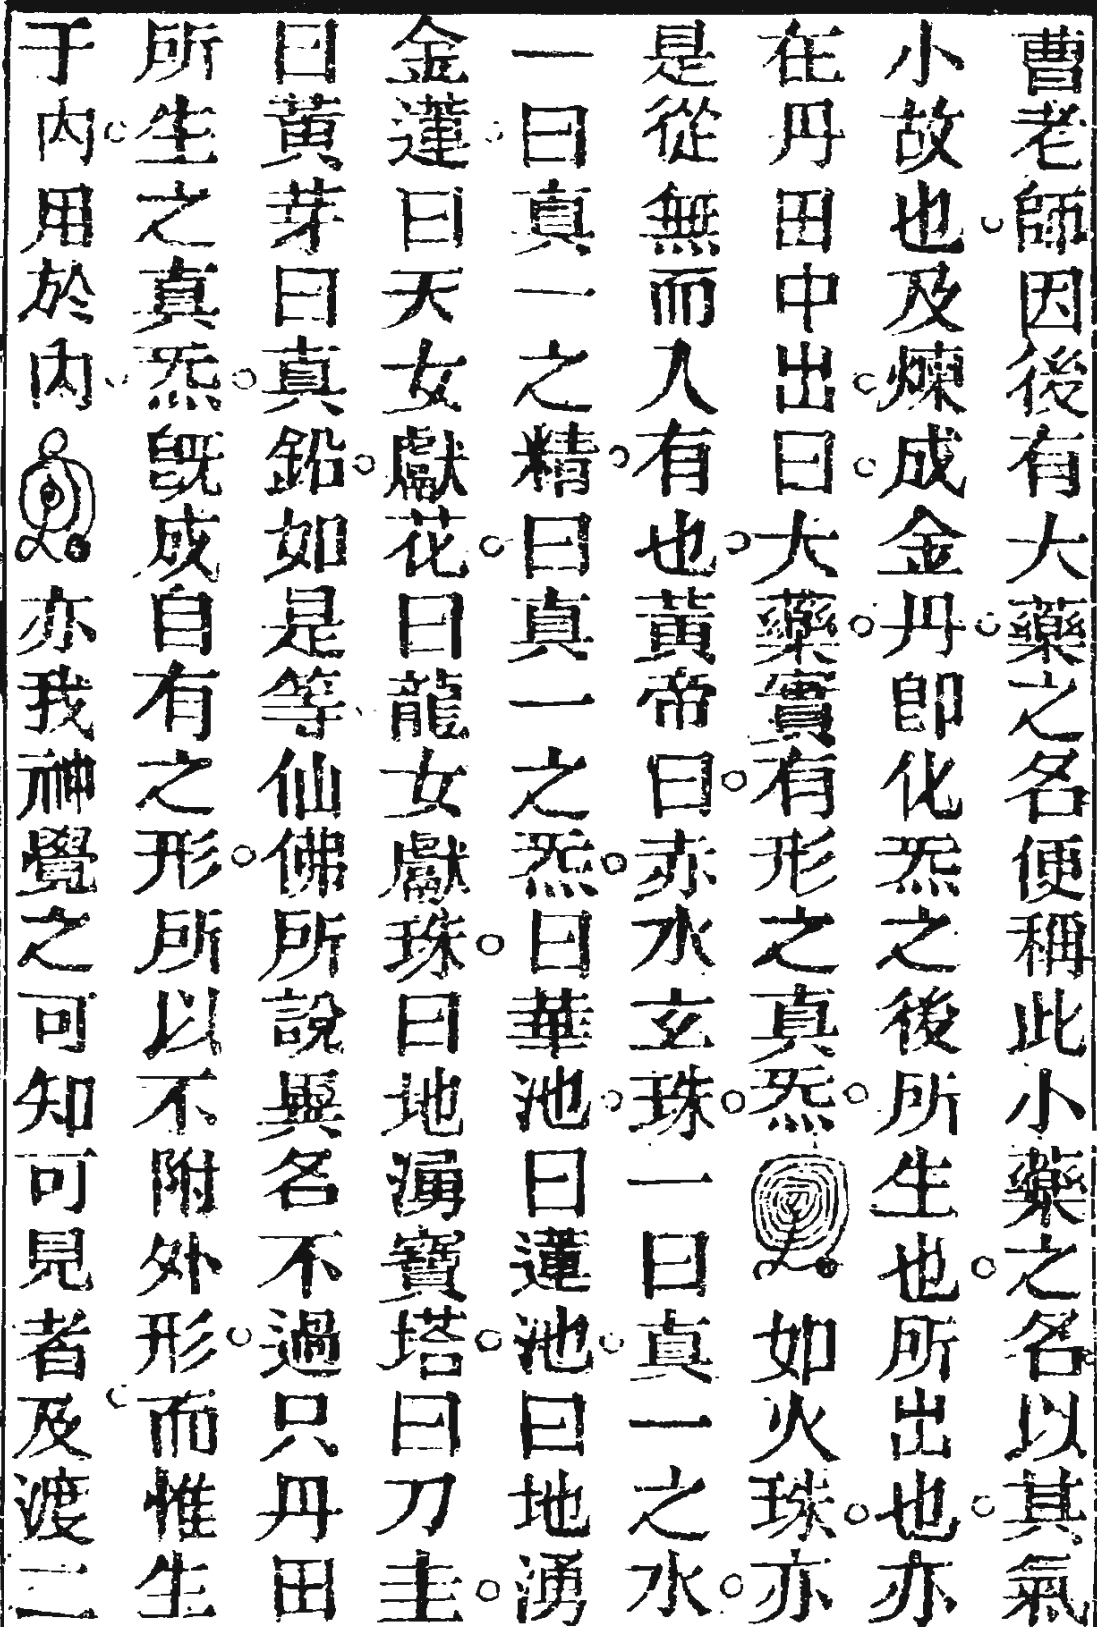 曹老師因後有大藥之名便稱此小藥之名以其氣
小故也及煉成金丹即化炁之後所生也所出也亦
在丹田中出曰大藥實有形之真炁如火珠亦
是從無而人有也黃帝曰赤水玄珠一曰真一之水
一曰真一之精曰真一之炁曰華池曰蓮池曰地湧
金蓮曰天女獻花曰龍女獻珠曰地湧寶塔曰刀圭
曰黃芽曰真鉛如是等仙佛所說異名不過只丹田
所生之真炁既成自有之形所以不附外形而惟生
于內用於內亦我神覺之可知可見者及渡二